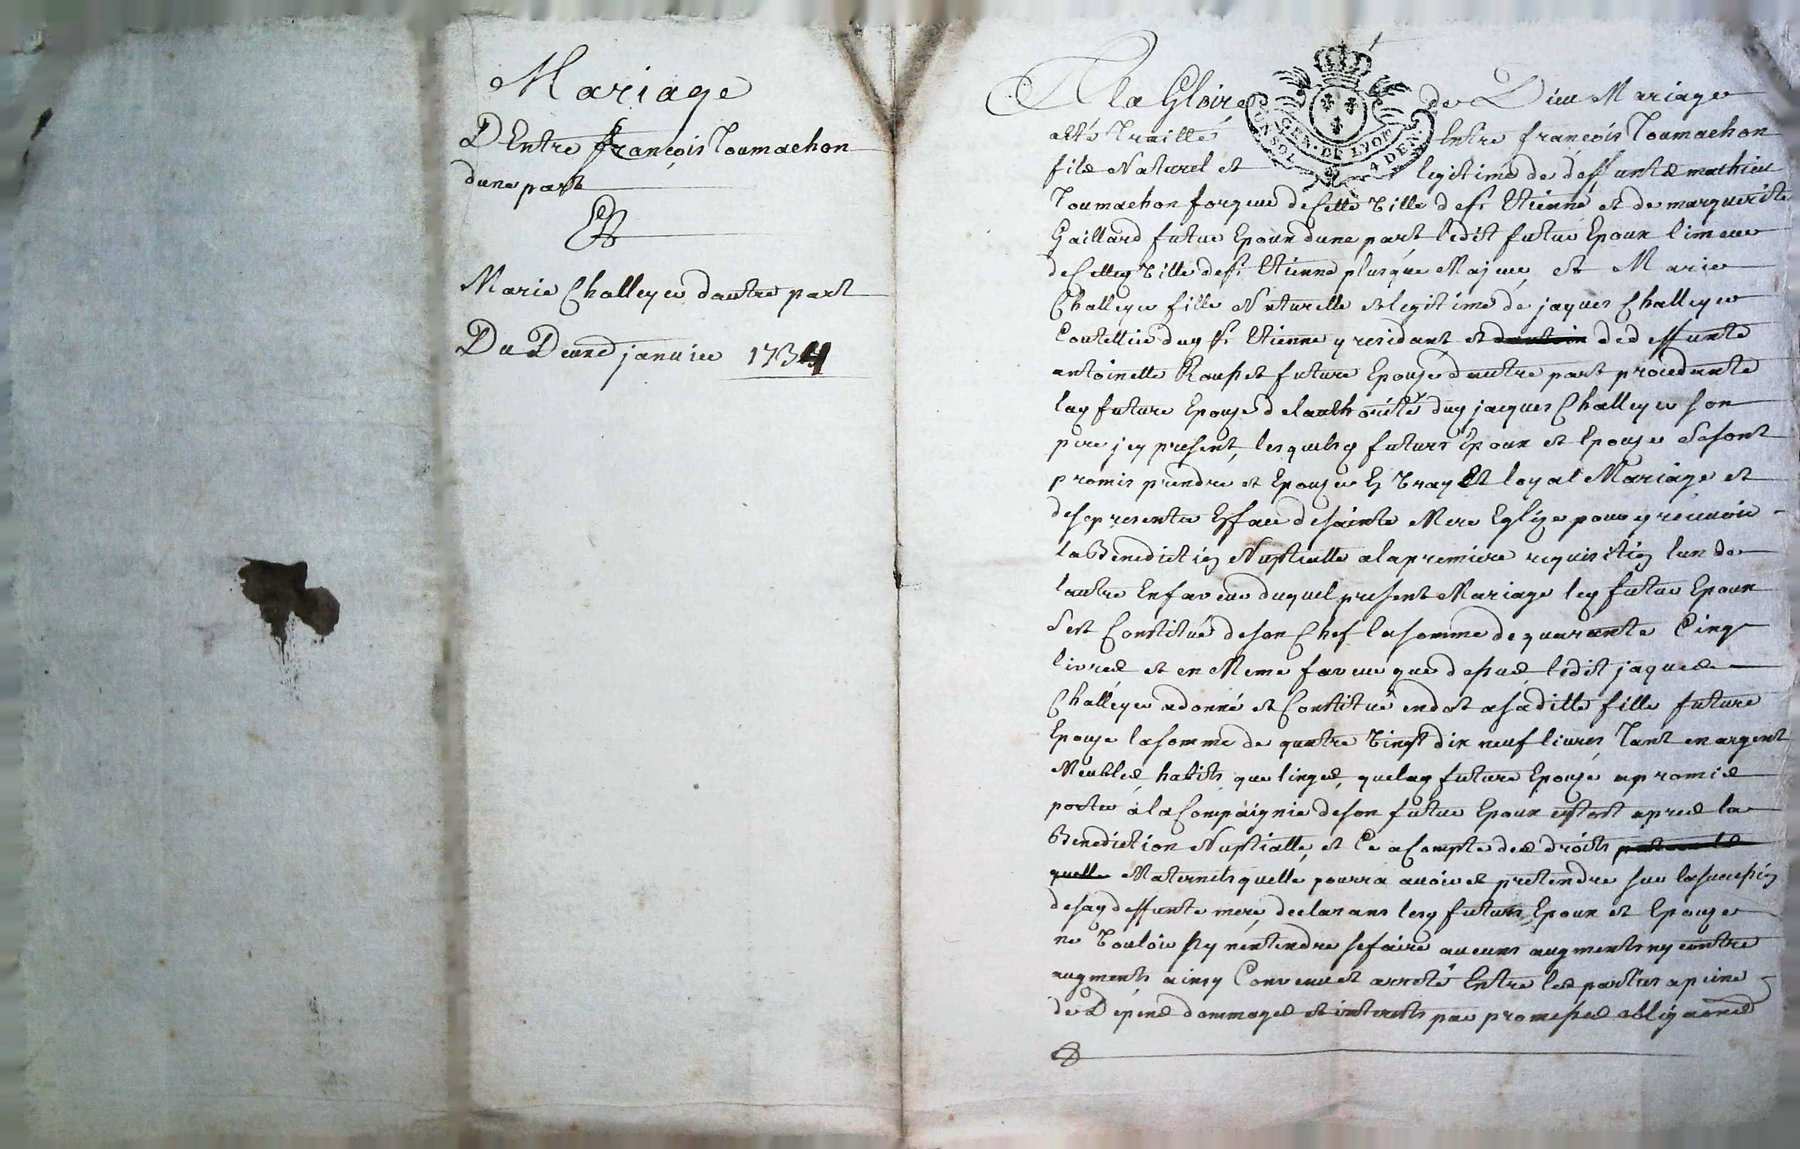 Mariage
D Entre françois Toumachon
dune part
Et
Marie Challeyer dautre part
Du Douze janvier 1734
A la Gloire de Dieu Mariage
GEN. DE LYON
UN SOL 4 DEN.
a été Traitté Entre françois Toumachon
fils Naturel et legitime de deffunts mathieu
Toumachon forgeur de Cette Ville de St Etienne et de marguerite
Gaillard futur Epoux dune part ledit futur Epoux limeur
de Cette Ville de St Etienne plusque Majeur, et Marie
Challeyer fille Naturelle et legitime de jaques Challeyer
Coutellier dud St Etienne y residant et de deffunte
antoinette future Epouse dautre part procedante
lad future Epouse de lauthorité dud jacques Challeyer son
pere jcy present, lesquels futurs Epoux et Epouse se sont
promis prendre et Epouser En vray et loyal Mariage et
de se presenter En face de sainte Mere Eglize pour y recevoir
la Benediction Nuptialle a la premiere requisition lun de
lautre En faveur duquel present Mariage led futur Epoux
sest Constitué de son Chef la somme de quarante Cinq
livres et en Meme faveur que dessus ledit jaques
Challeyer a donné et Constitué en dot a sa ditte fille future
Epouse la somme de quatre vingt dix neuf livres Tant en argent
Meubles, habits, que linges, que lad future Epouse a promis
porter à la Compaignie de son futur Epoux aprés la
Benediction Nuptialle, et Ce a Compte des droits
Maternels quelle pourra avoir et pretendre sur la succession
de sad deffunte mere, declarans lesd futurs Epoux et Epouse
ne vouloir ny nentendre se faire aucuns augments ny contre
augments ainsy Convenu et arreté Entre les parties a peine
de Depens dommages et interests par promesses obligaōns